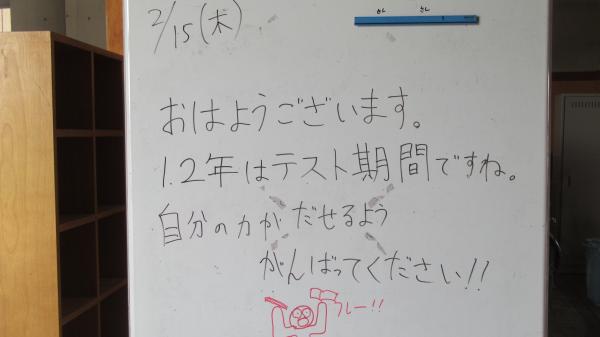 2/15(木)
おはようございます。
1.2年はテスト期間ですね。
自分の力がだせるよう
がんばってください!!
フレー!!